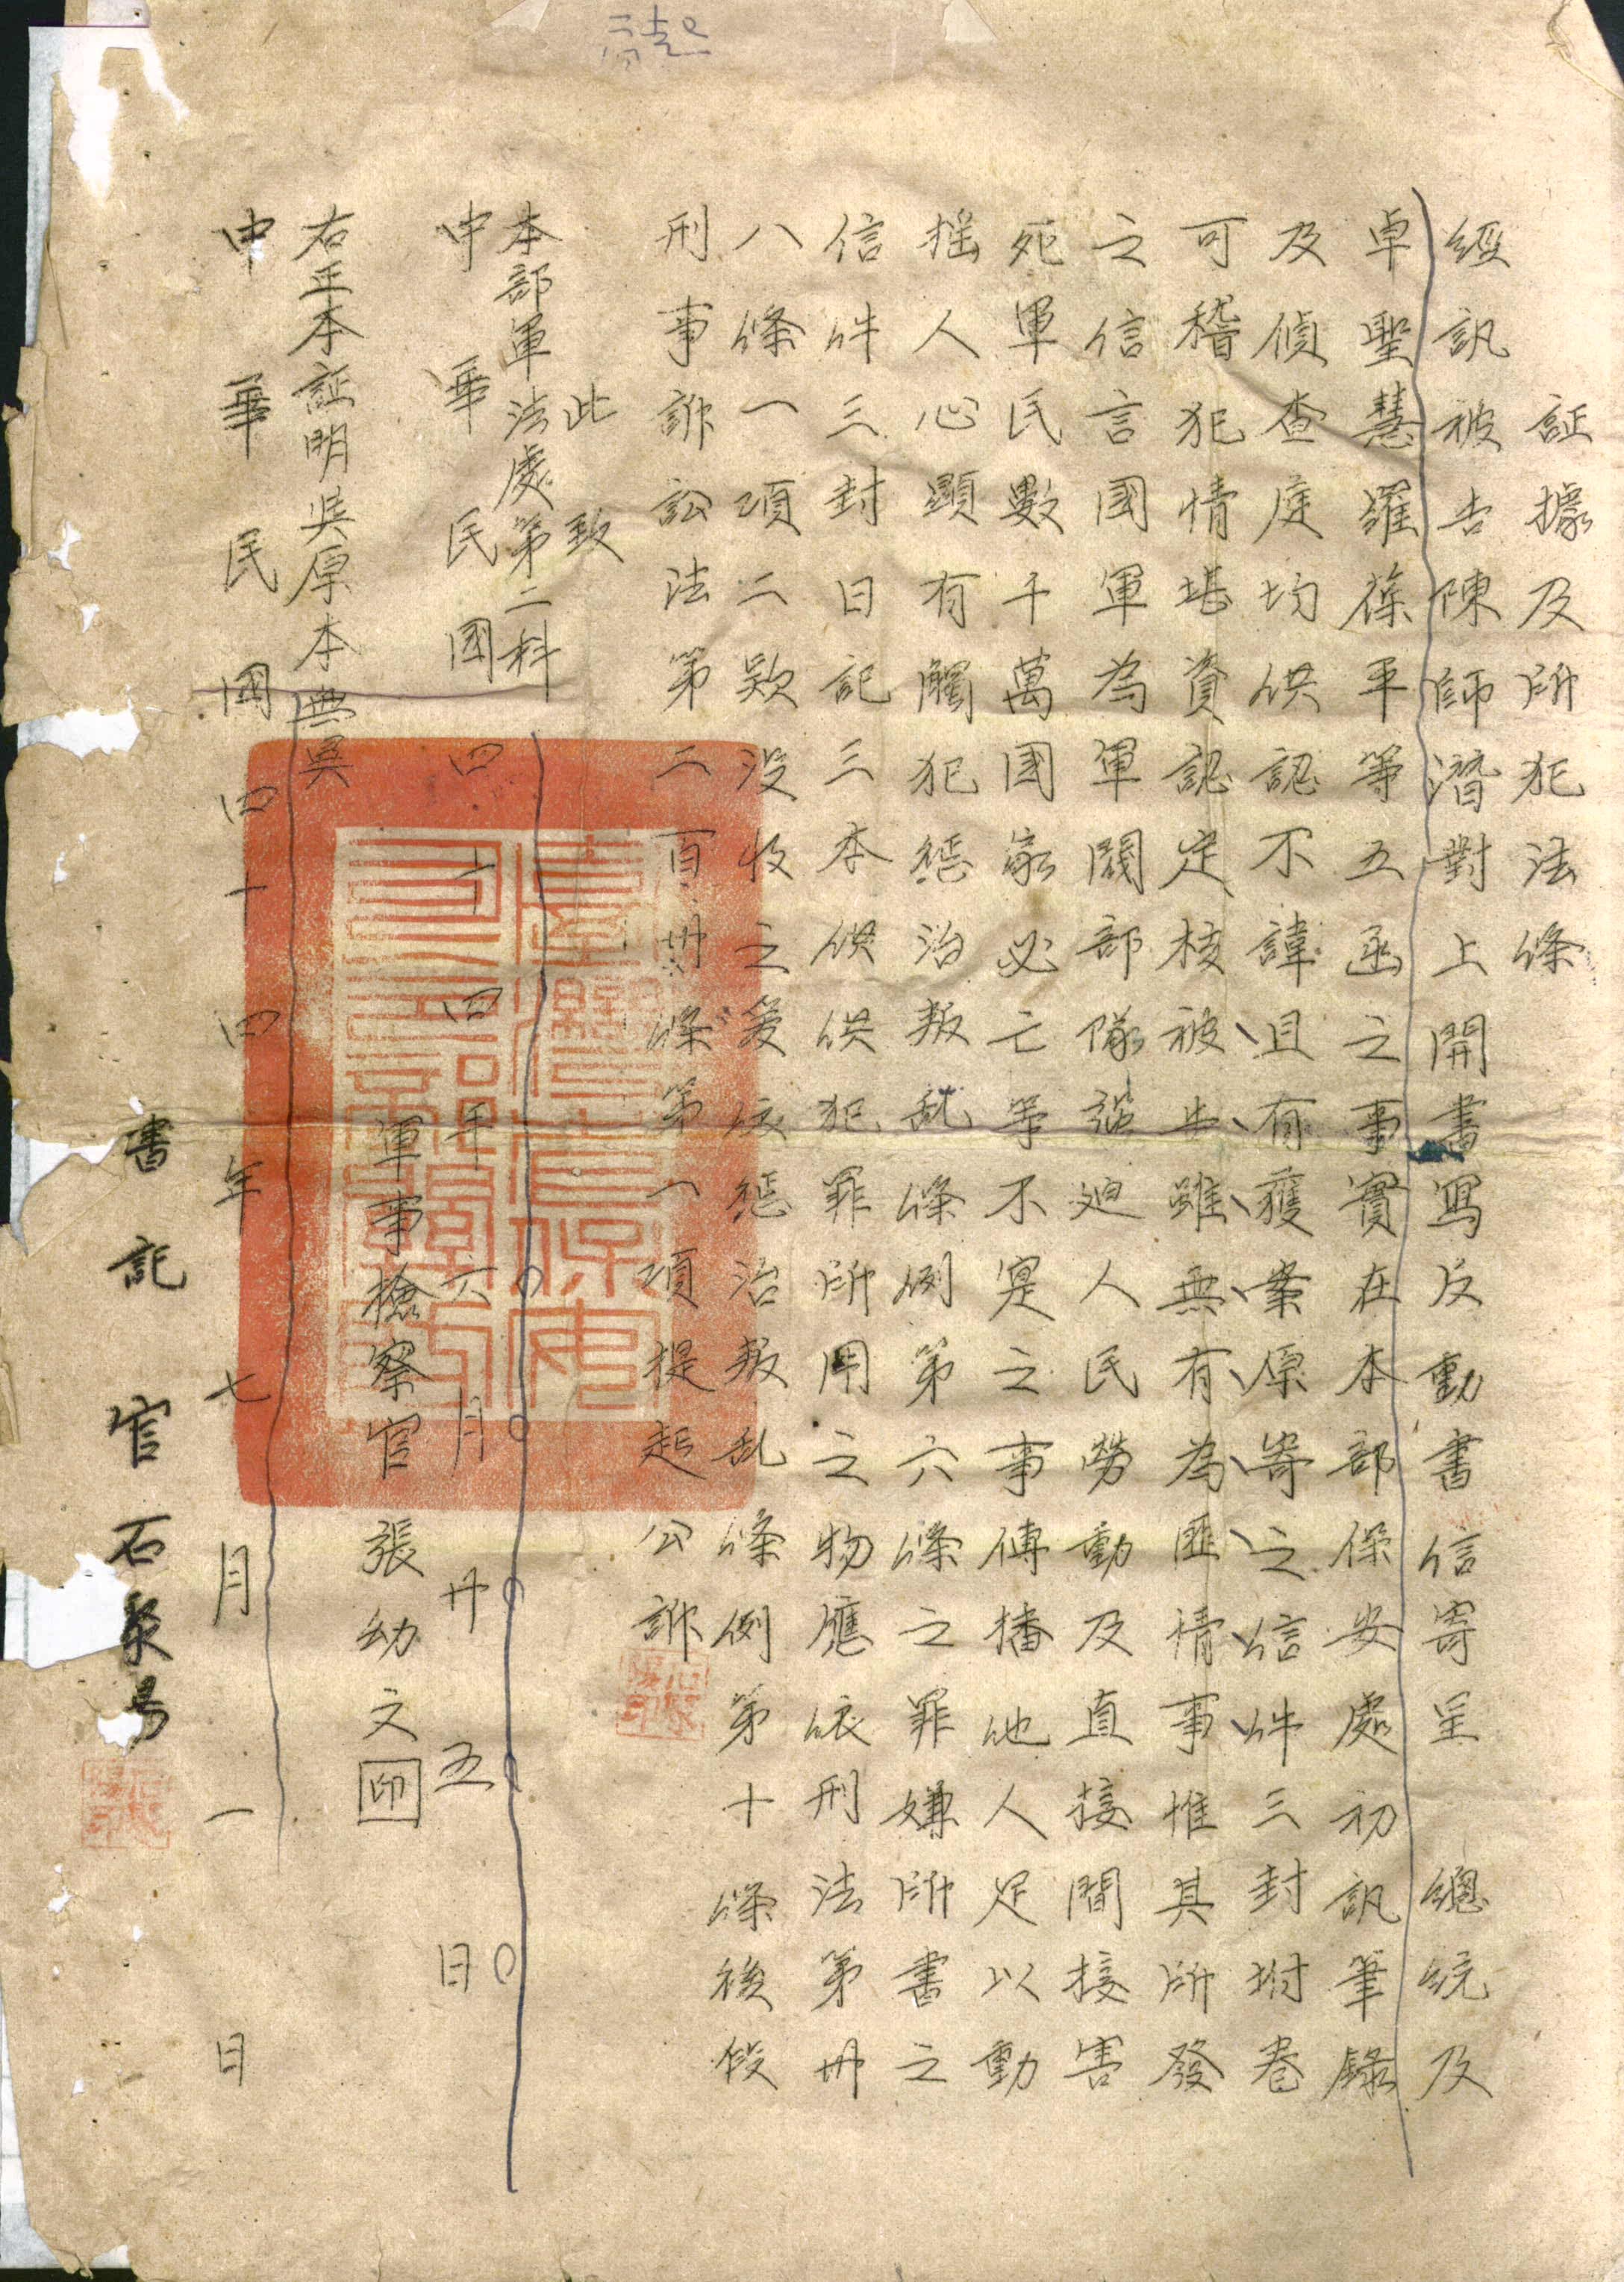 証據及所犯法條
經訊被告陳師潛對上開書寫反動書信寄呈 總統及
卓聖慧羅葆平等五函之事實在本部保安處初訊筆錄
及偵查庭均供認不諱且有獲案原寄之信件三封坿卷
可稽犯情堪資認定核被告雖無有為匪情事惟其所發
之信言國軍為軍閥部隊 迫人民勞動及直接間接害
死軍民數千萬國家必亡等不寔之事傳播他人足以動
搖人心顯有觸犯懲治叛乱條例第六條之罪嫌所書之
信件三封日記三本供供犯罪所用之物應依刑法第卅
八條一項二款沒收之爰依懲治叛乱條例第十條後段
刑事訴訟法第二百卅條第一項提起公訴
此致
本部軍法處第二科
中華民國四十四年六月廿五日
軍事檢察官張幼文印
右正本証明與原本無異
中華民國四十四年七月一日
書記官石